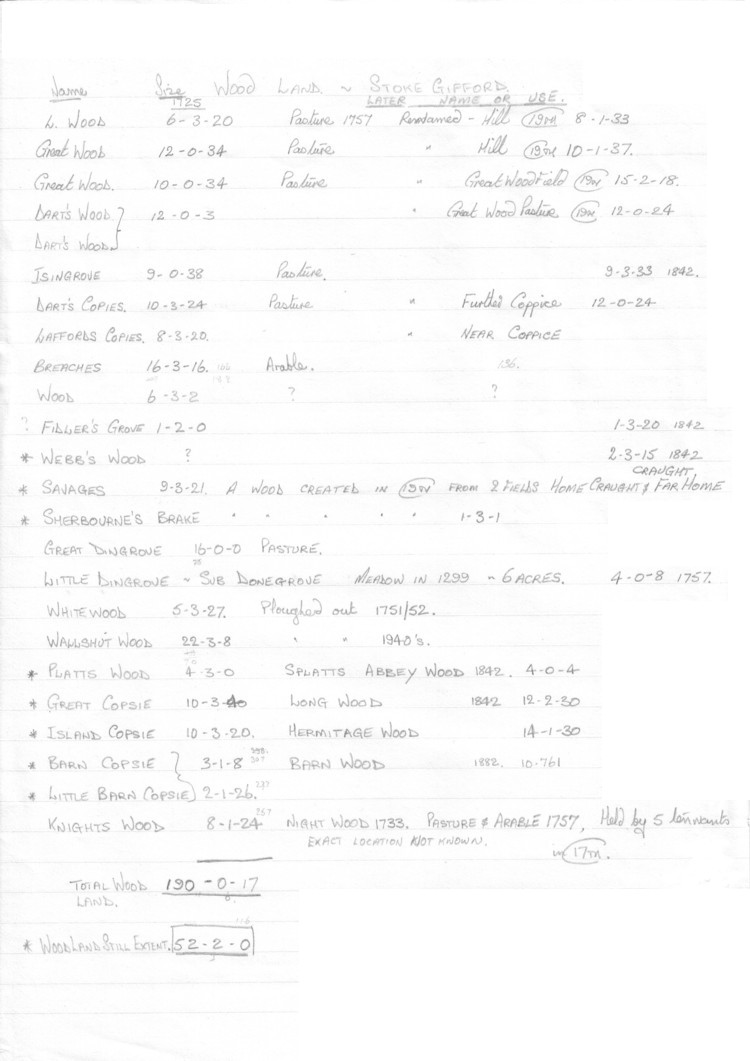 Name Size Wood Land ~ Stoke Gifford.
1725 LATER NAME OR USE.
L. Wood 6-3-20 Pasture 1757 Rendamed - Hill 19TH 8-1-33
Great Wood 12-0-34 Pasture " Hill 19TH 10-1-37.
Great Wood. 10-0-34 Pasture " Great Woodfield 19TH 15-2-18.
DART'S WOOD } 12-0-3 " Great Wood Pasture 19TH 12-0-24
DART'S WOOD
ISINGROVE 9-0-38 Pasture. 9-3-33 1842.
DART'S COPIES. 10-3-24 Pasture " Further Coppice 12-0-24
LAFFORDS COPIES. 8-3-20. " NEAR COPPICE
BREACHES 16-3-16. Arable. 136.
WOOD 6-3-2 ? ?
? FIDLER'S GROVE 1-2-0 1-3-20 1842
* WEBB'S WOOD ? 2-3-15 1842
CRAUGHT.
* SAVAGES 9-3-21. A WOOD CREATED IN 19TH FROM 2 FIELDS HOME CRAUGHT & FAR HOME
* SHERBOURNE'S BRAKE " " " " " 1-3-1
GREAT DINGROVE 16-0-0 PASTURE.
LITTLE DINGROVE ~ SUB DONEGROVE MEADOW IN 1299 ~ 6 ACRES. 4-0-8 1757.
WHITEWOOD 5-3-27. Ploughed out 1751/52.
WALLSHUT WOOD 22-3-8 " " 1940's.
* PLATTS WOOD 4-3-0 SPLATTS ABBEY WOOD 1842. 4-0-4
* GREAT COPSIE 10-3- LONG WOOD 1842 12-2-30
* ISLAND COPSIE 10-3-20. HERMITAGE WOOD 14-1-30
* BARN COPSIE } 3-1-8 BARN WOOD 1882. 10.761
* LITTLE BARN COPSIE 2-1-26.
KNIGHTS WOOD 8-1-24 NIGHT WOOD 1733. PASTURE & ARABLE 1757, Held by 5 tennants
EXACT LOCATION NOT KNOWN. in 17TH.
TOTAL WOOD 190-0-17
LAND.
* WOODLAND STILL EXTENT. 52-2-0